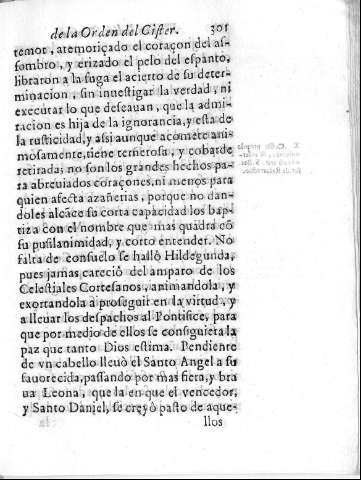 de la Orden del Cister. 301
temor, atemoriçado el coraçon del as-
sombro, y erizado el pelo del espanto,
libraron a la fuga el acierto de su deter-
minacion, sin inuestigar la verdad, ni
executar lo que deseauan, que la admi-
racion es hija de la ignorancia, y esta de
la rusticidad, y assi aunque acomete ani-
mosamente, tiene temerosa, y cobarde
retirada; no son los grandes hechos pa-
ra abreuiados coraçones, ni menos para
quien afecta azañerias, porque no dan-
doles alcãce su corta capacidad los bap-
tiza con el nombre que mas quadra cõ
su pusilanimidad, y corto entender. No
falta de consuelo se hallò Hildegunda,
pues jamas careciò del amparo de los
Celestiales Cortesanos, animandola, y
exortandola à proseguir en la virtud, y
a lleuar los despachos al Pontifice, para
que por medio de ellos se consiguiera la
paz que tanto Dios estima. Pendiente
de vn cabello lleuò el Santo Angel a su
fauorecida, passando por mas fiera, y bra
ua Leona, que la en que el vencedor,
y Santo Daniel, se creyò pasto de aque-
llos